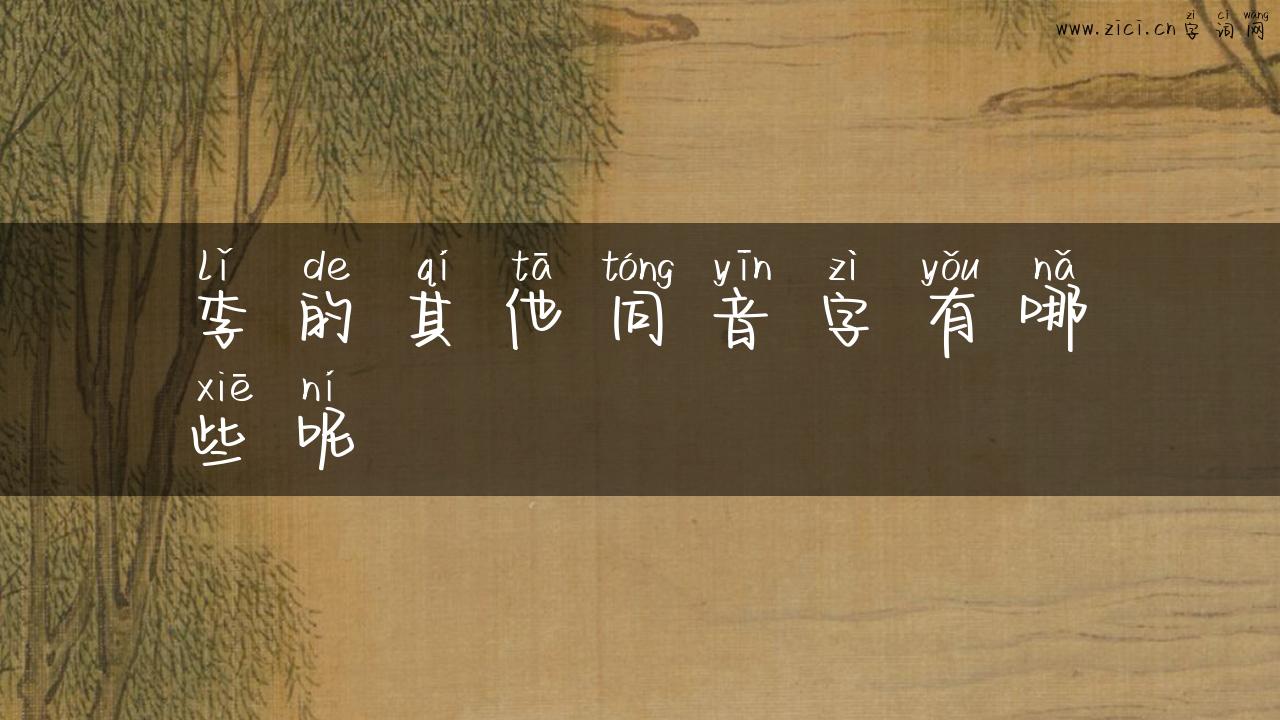 zì cí wǎng
www.zici.cn字词网
lǐ de qí tā tóng yīn zì yǒu nǎ
李的其他同音字有哪
xiē ní
些呢